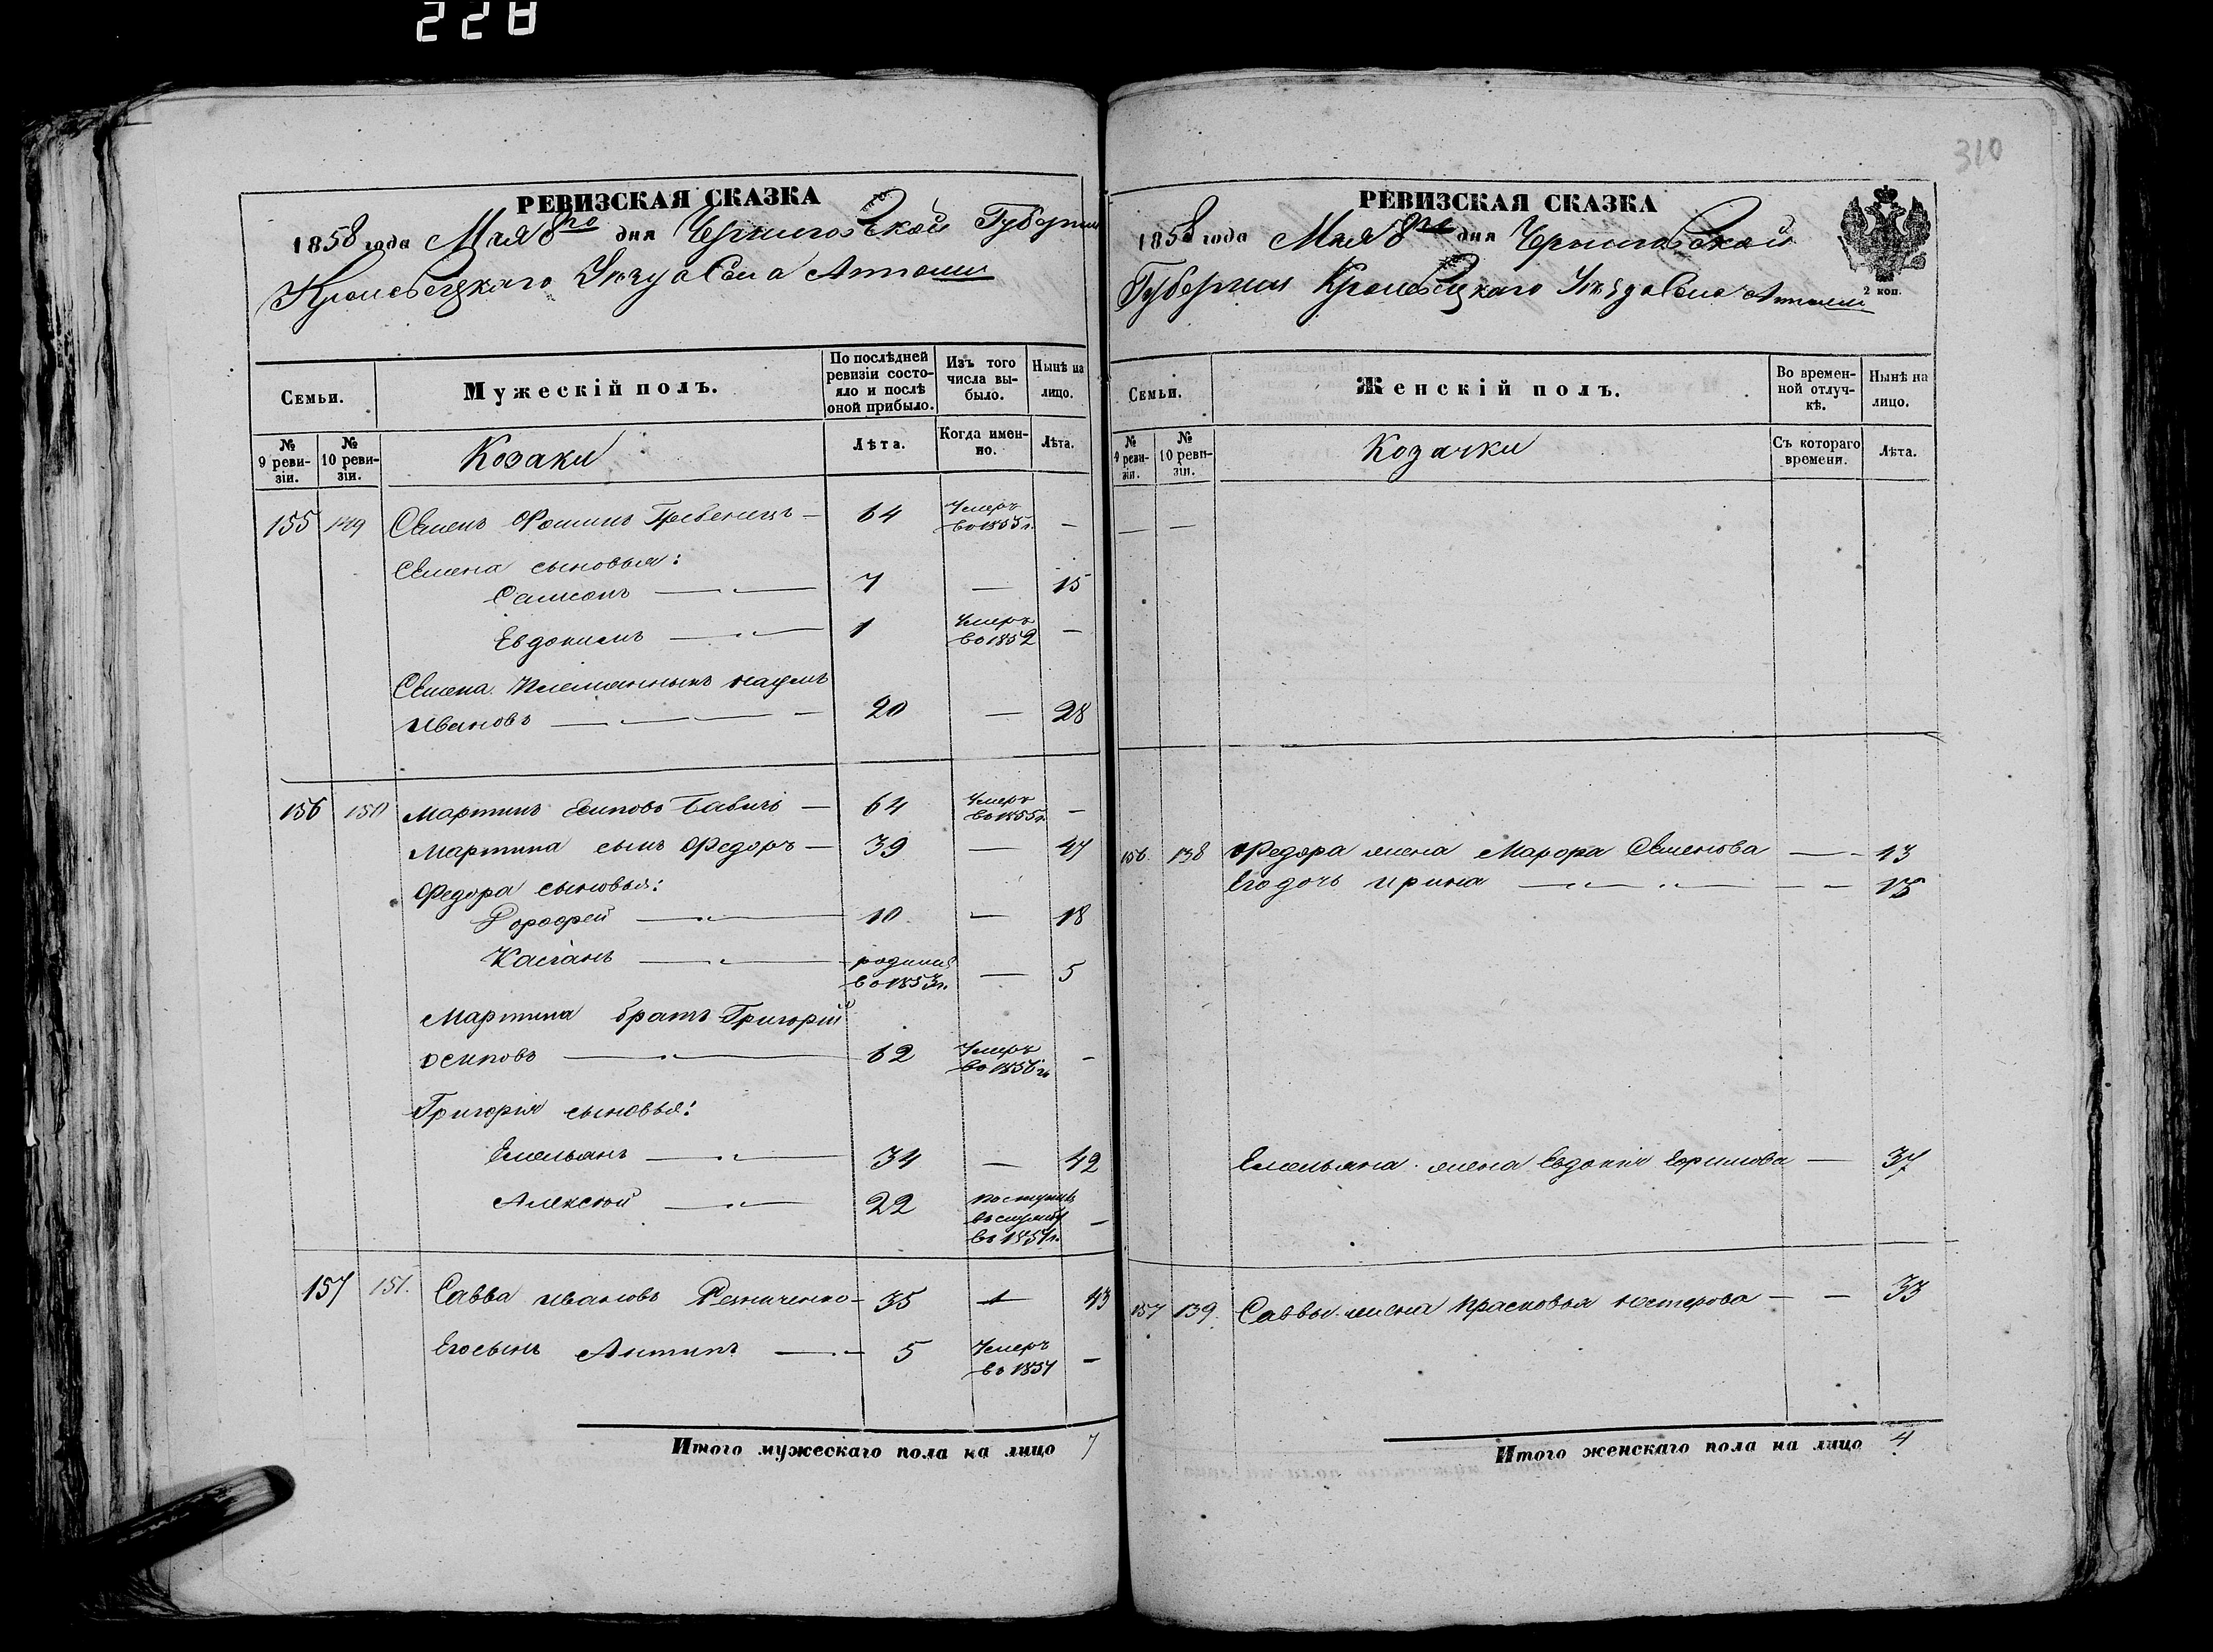 228
310
РЕВИЗСКАЯ СКАЗКА
1858 года Мая 8го дня Черниговской Губернии
Кролевецкаго Уѣзда Села
Семьи.
Мужескій полъ.
По послѣдней ревизіи состояло и послѣ оной прибыло.
Изъ того числа выбыло.
Нынѣ на лицо.
№ 9 ревизіи.
№ 10 ревизіи.
Козаки
Лѣта.
Когда именно.
Лѣта.
155 149 Семенъ Фоминъ Гребеницъ — 64 Умеръ во 1855 г. —
Семена сыновья:
Самсонъ — 7 — 15
Евдокимъ — 1 Умеръ во 1852 —
Семена племянникъ Наумъ
Ивановъ — 20 — 28
156 150 Мартинъ Осиповъ Бабичъ — 64 Умеръ во 1855 г. —
Мартина сынъ Федоръ — 39 — 47
Федора сыновья:
Дорофей — 10 — 18
Касіанъ — родился во 1853 г. — 5
Мартина братъ Григорій
Осиповъ — 62 Умеръ —
Григорія сыновья:
Емельянъ — 34 — 42
Алексѣй — 22 поступилъ въ службу —
157 151. Савва Ивановъ Резниченко — 35 — 43
Его сынъ Антипъ — 5 Умеръ —
Итого мужескаго пола на лицо 7
РЕВИЗСКАЯ СКАЗКА
1858 года Мая 8го дня Черниговской
Губернии Кролевецкаго Уѣзда Села
2 коп.
Семьи.
Женскій полъ.
Во временной отлучкѣ.
Нынѣ на лицо.
№ 9 ревизіи.
№ 10 ревизіи.
Козачки
Съ котораго времени.
Лѣта.
— —
156. 138 Федора жена Марфа Семенова — 43
Его дочь Ирина — — 15
Емельяна жена Евдокія Ефимова — 37
157 139. Саввы жена Прасковья Нестерова — — 33
Итого женскаго пола на лицо 4